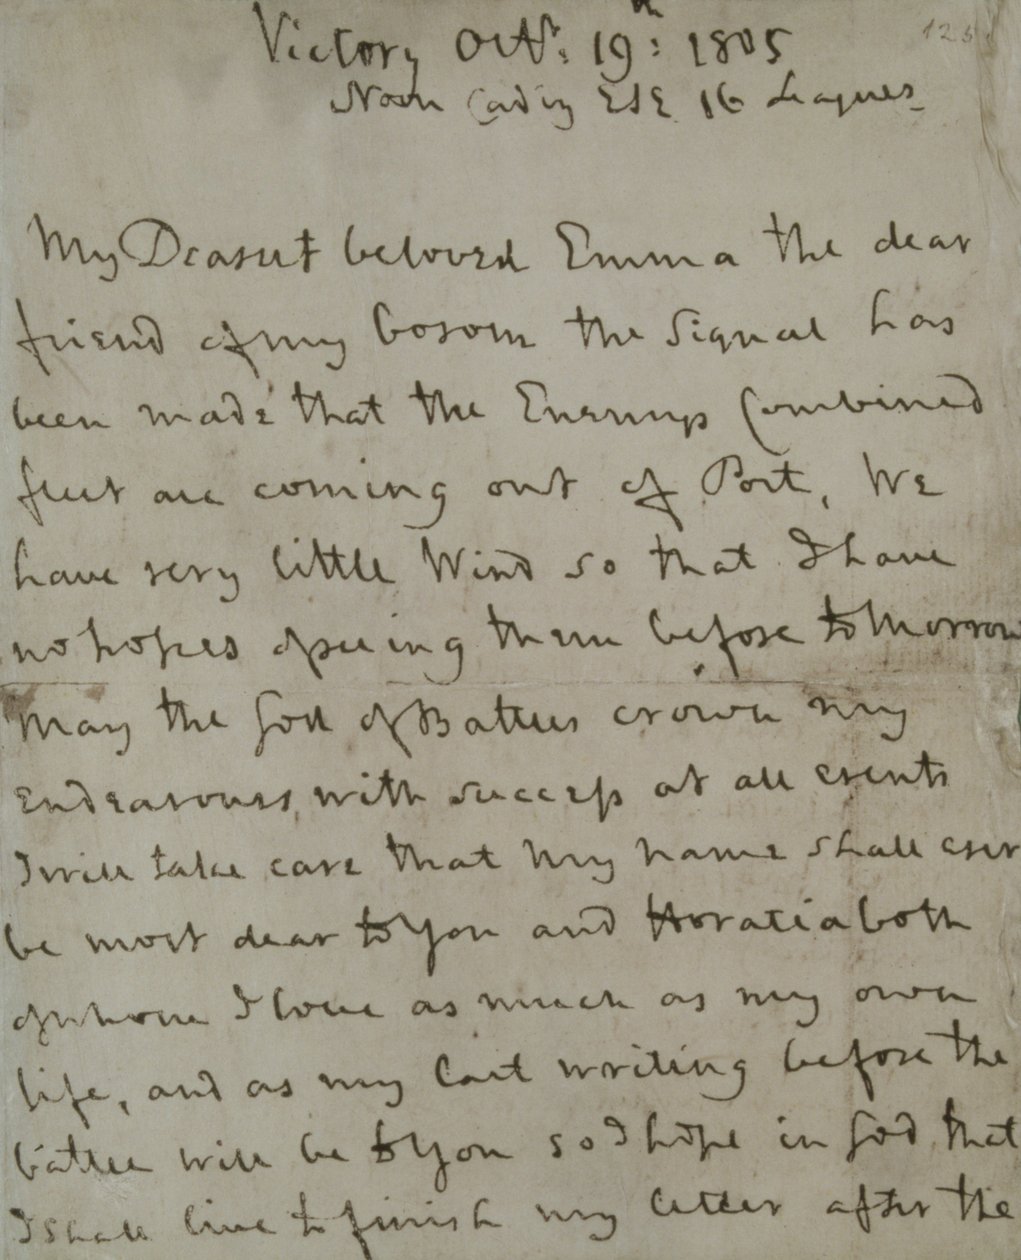 Victory Octr. 19th: 1805
Noon Cadiz ESE 16 Leagues
My Dearest beloved Emma the dear
friend of my bosom the Signal has
been made that the Enemys Combined
fleet are coming out of Port, We
have very little Wind so that I have
no hopes of seeing them before tomorrow
May the God of Battles crown my
Endeavours with success at all events
I will take care that my name shall ever
be most dear to You and Horatia both
of whom I love as much as my own
life, and as my last writing before the
battle will be to You so I hope in God that
I shall live to finish my letter after the